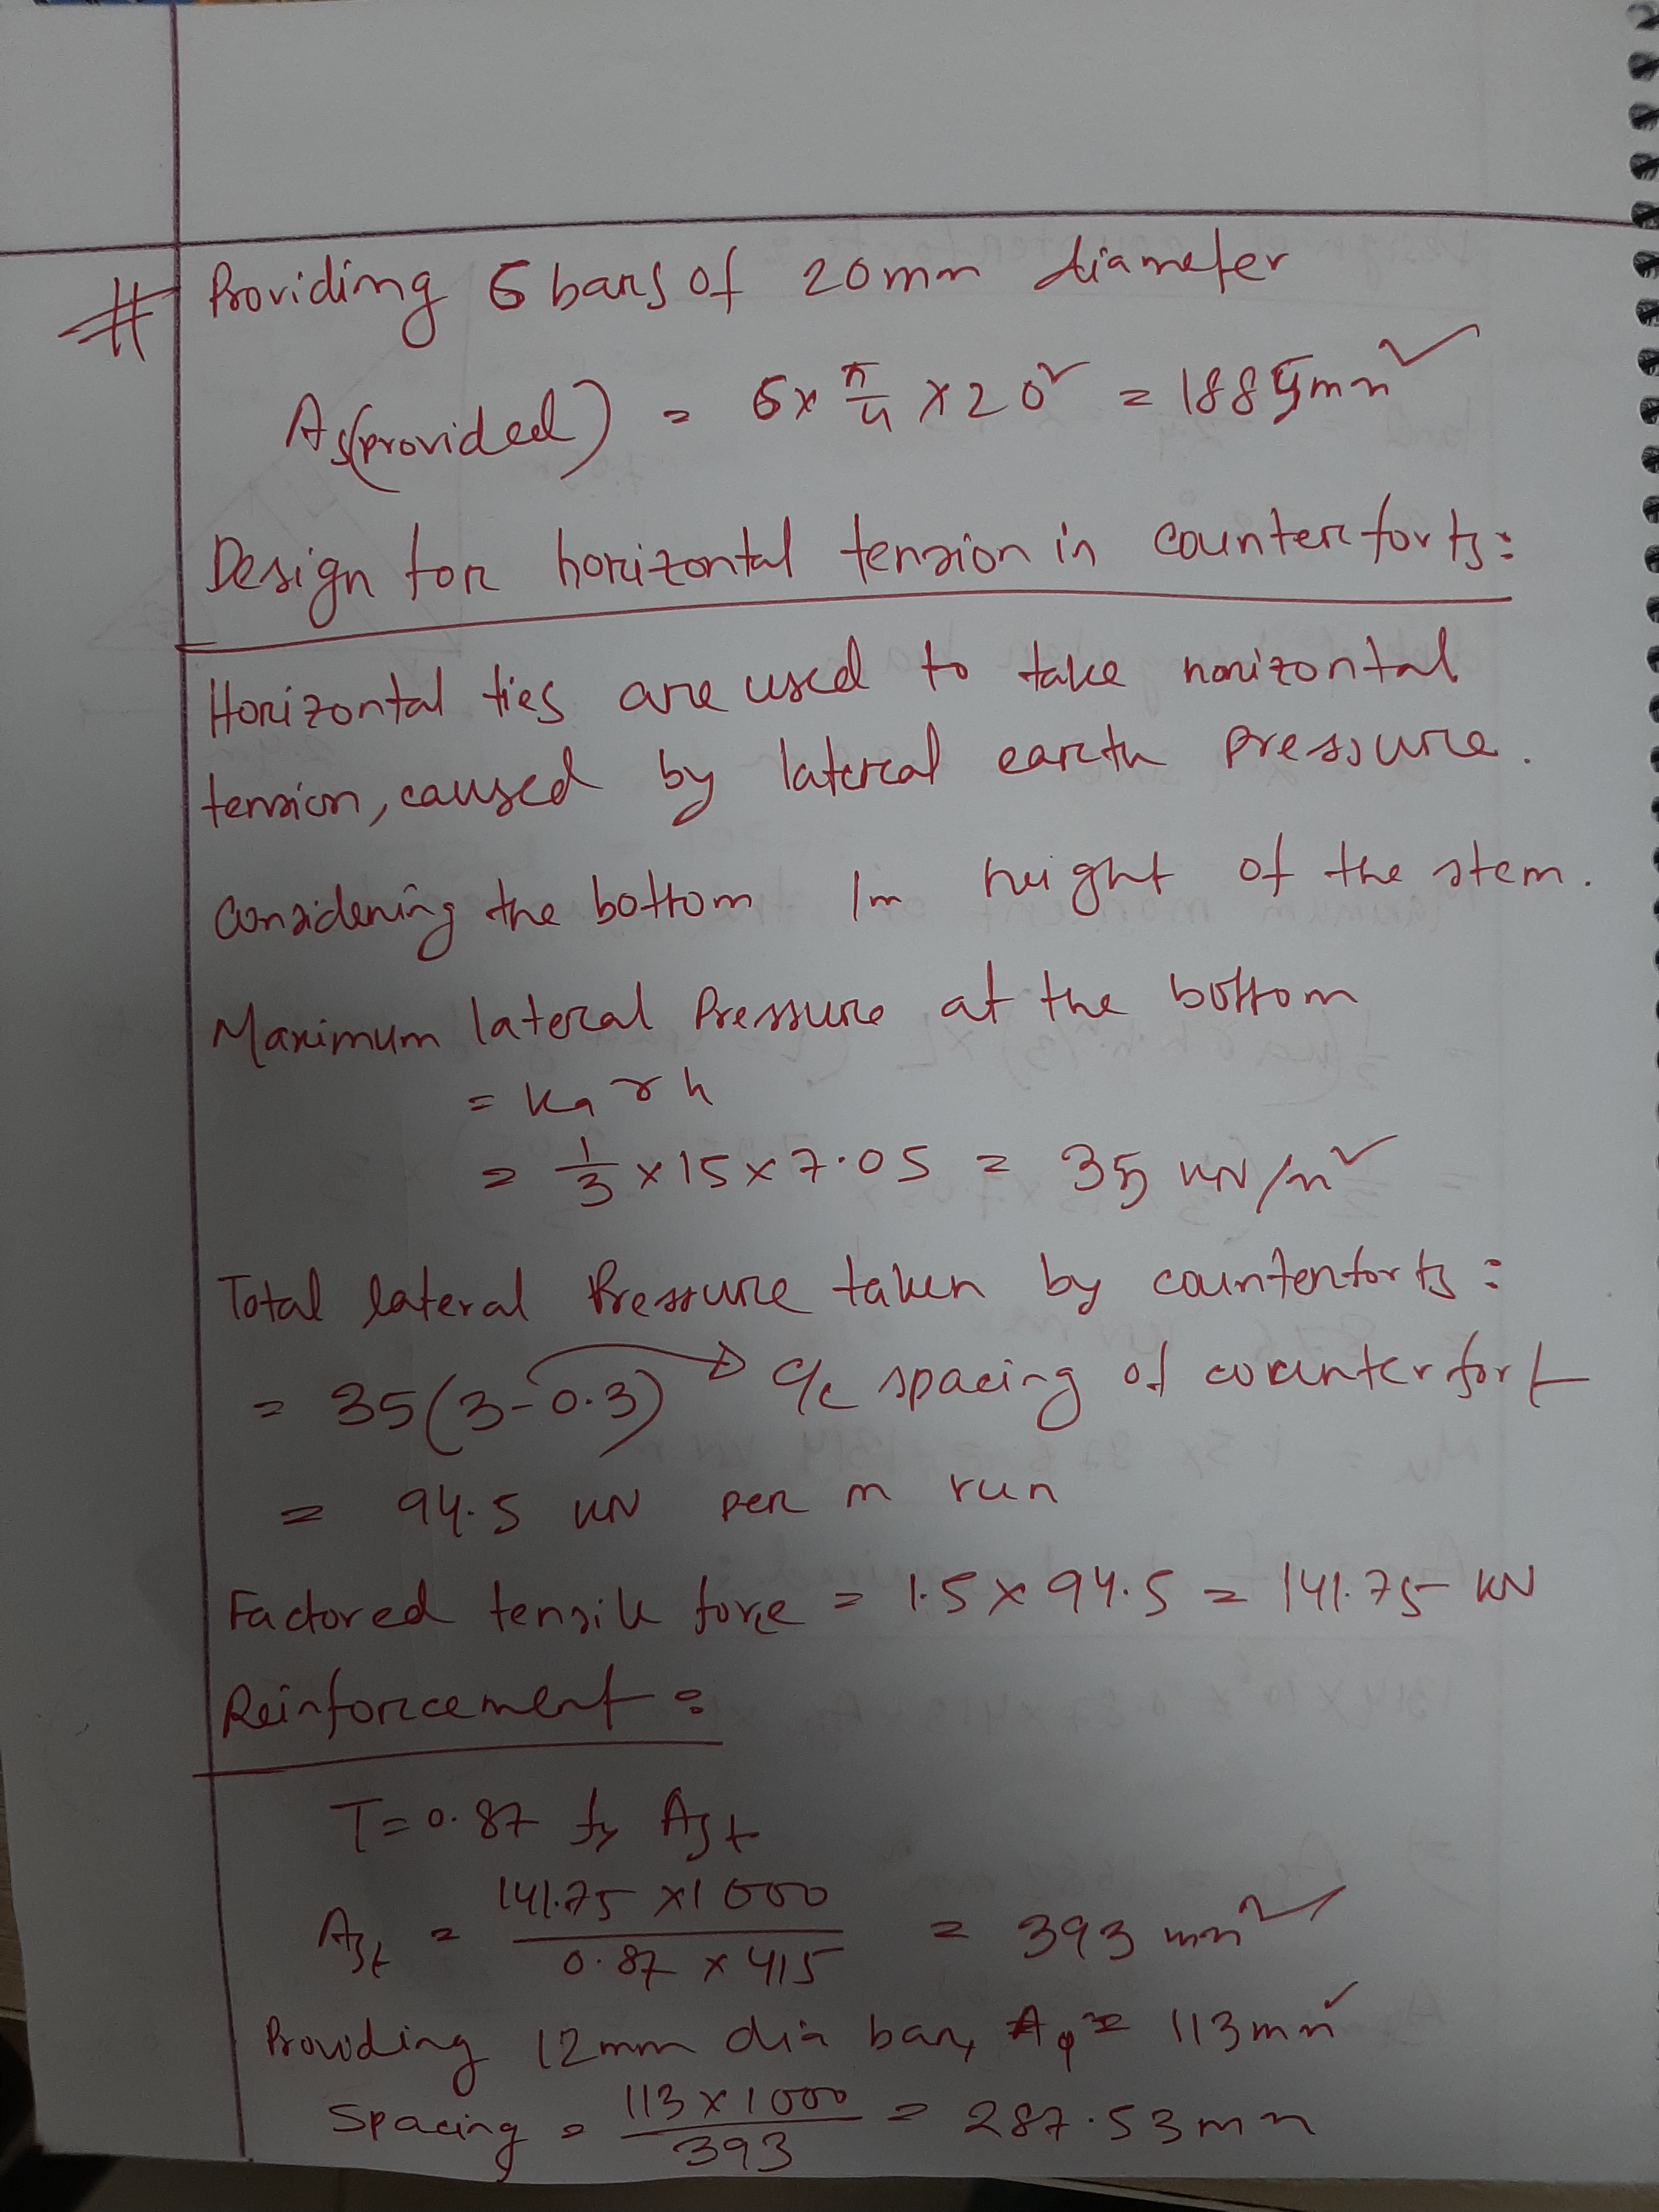 # Providing 6 bars of 20mm diameter
As(provided) = 6 × π/4 × 20² = 1885mm²
Design for horizontal tension in counterforts:
Horizontal ties are used to take horizontal
tension, caused by lateral earth pressure.
Considering the bottom 1m height of the stem.
Maximum lateral Pressure at the bottom
= ka γ h
= 1/3 × 15 × 7.05 = 35 kN/m²
Total lateral Pressure taken by counterforts:
= 35(3-0.3) → c/c spacing of counterfort
= 94.5 kN per m run
Factored tensile force = 1.5 × 94.5 = 141.75 kN
Reinforcement:
T = 0.87 fy Ast
Ast = 141.75 × 1000 / 0.87 × 415 = 393 mm²
Providing 12mm dia bar, Aφ = 113mm²
Spacing = 113 × 1000 / 393 = 287.53mm